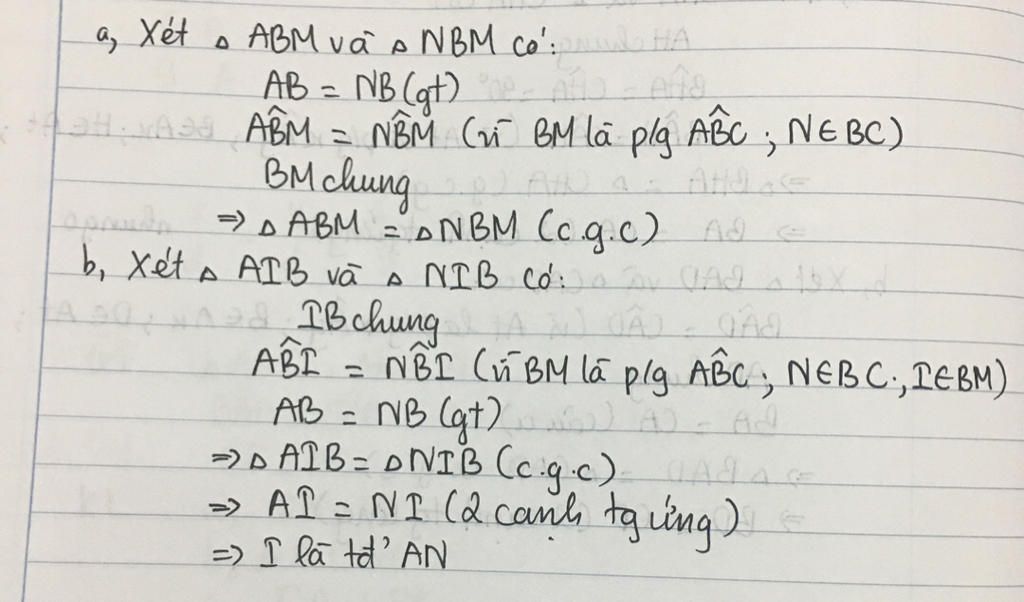 a, Xét △ ABM và △ NBM có:
AB = NB (gt)
AB̂M = NB̂M (vì BM là p/g AB̂C ; N∈BC)
BM chung
⇒ △ ABM = △NBM (c.g.c)
b, Xét △ AIB và △ NIB có:
IB chung
AB̂I = NB̂I (vì BM là p/g AB̂C ; N∈BC ; I∈BM)
AB = NB (gt)
⇒ △ AIB = △NIB (c.g.c)
⇒ AI = NI (2 cạnh tg ứng)
⇒ I là tđ' AN